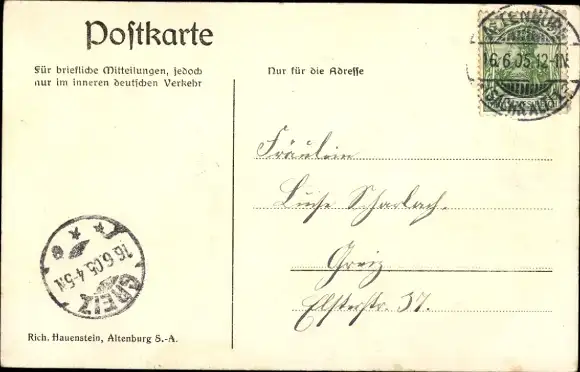 Postkarte
Für briefliche Mitteilungen, jedoch
nur im inneren deutschen Verkehr
Nur für die Adresse
ALTENBURG
6.6.05.12-1N.
(SACHS.ALTB.)
Fräulein
Luise Scharlach.
Greiz
Elsterstr. 37.
16.6.05.4-5N.
GREIZ
Rich. Hauenstein, Altenburg S.-A.